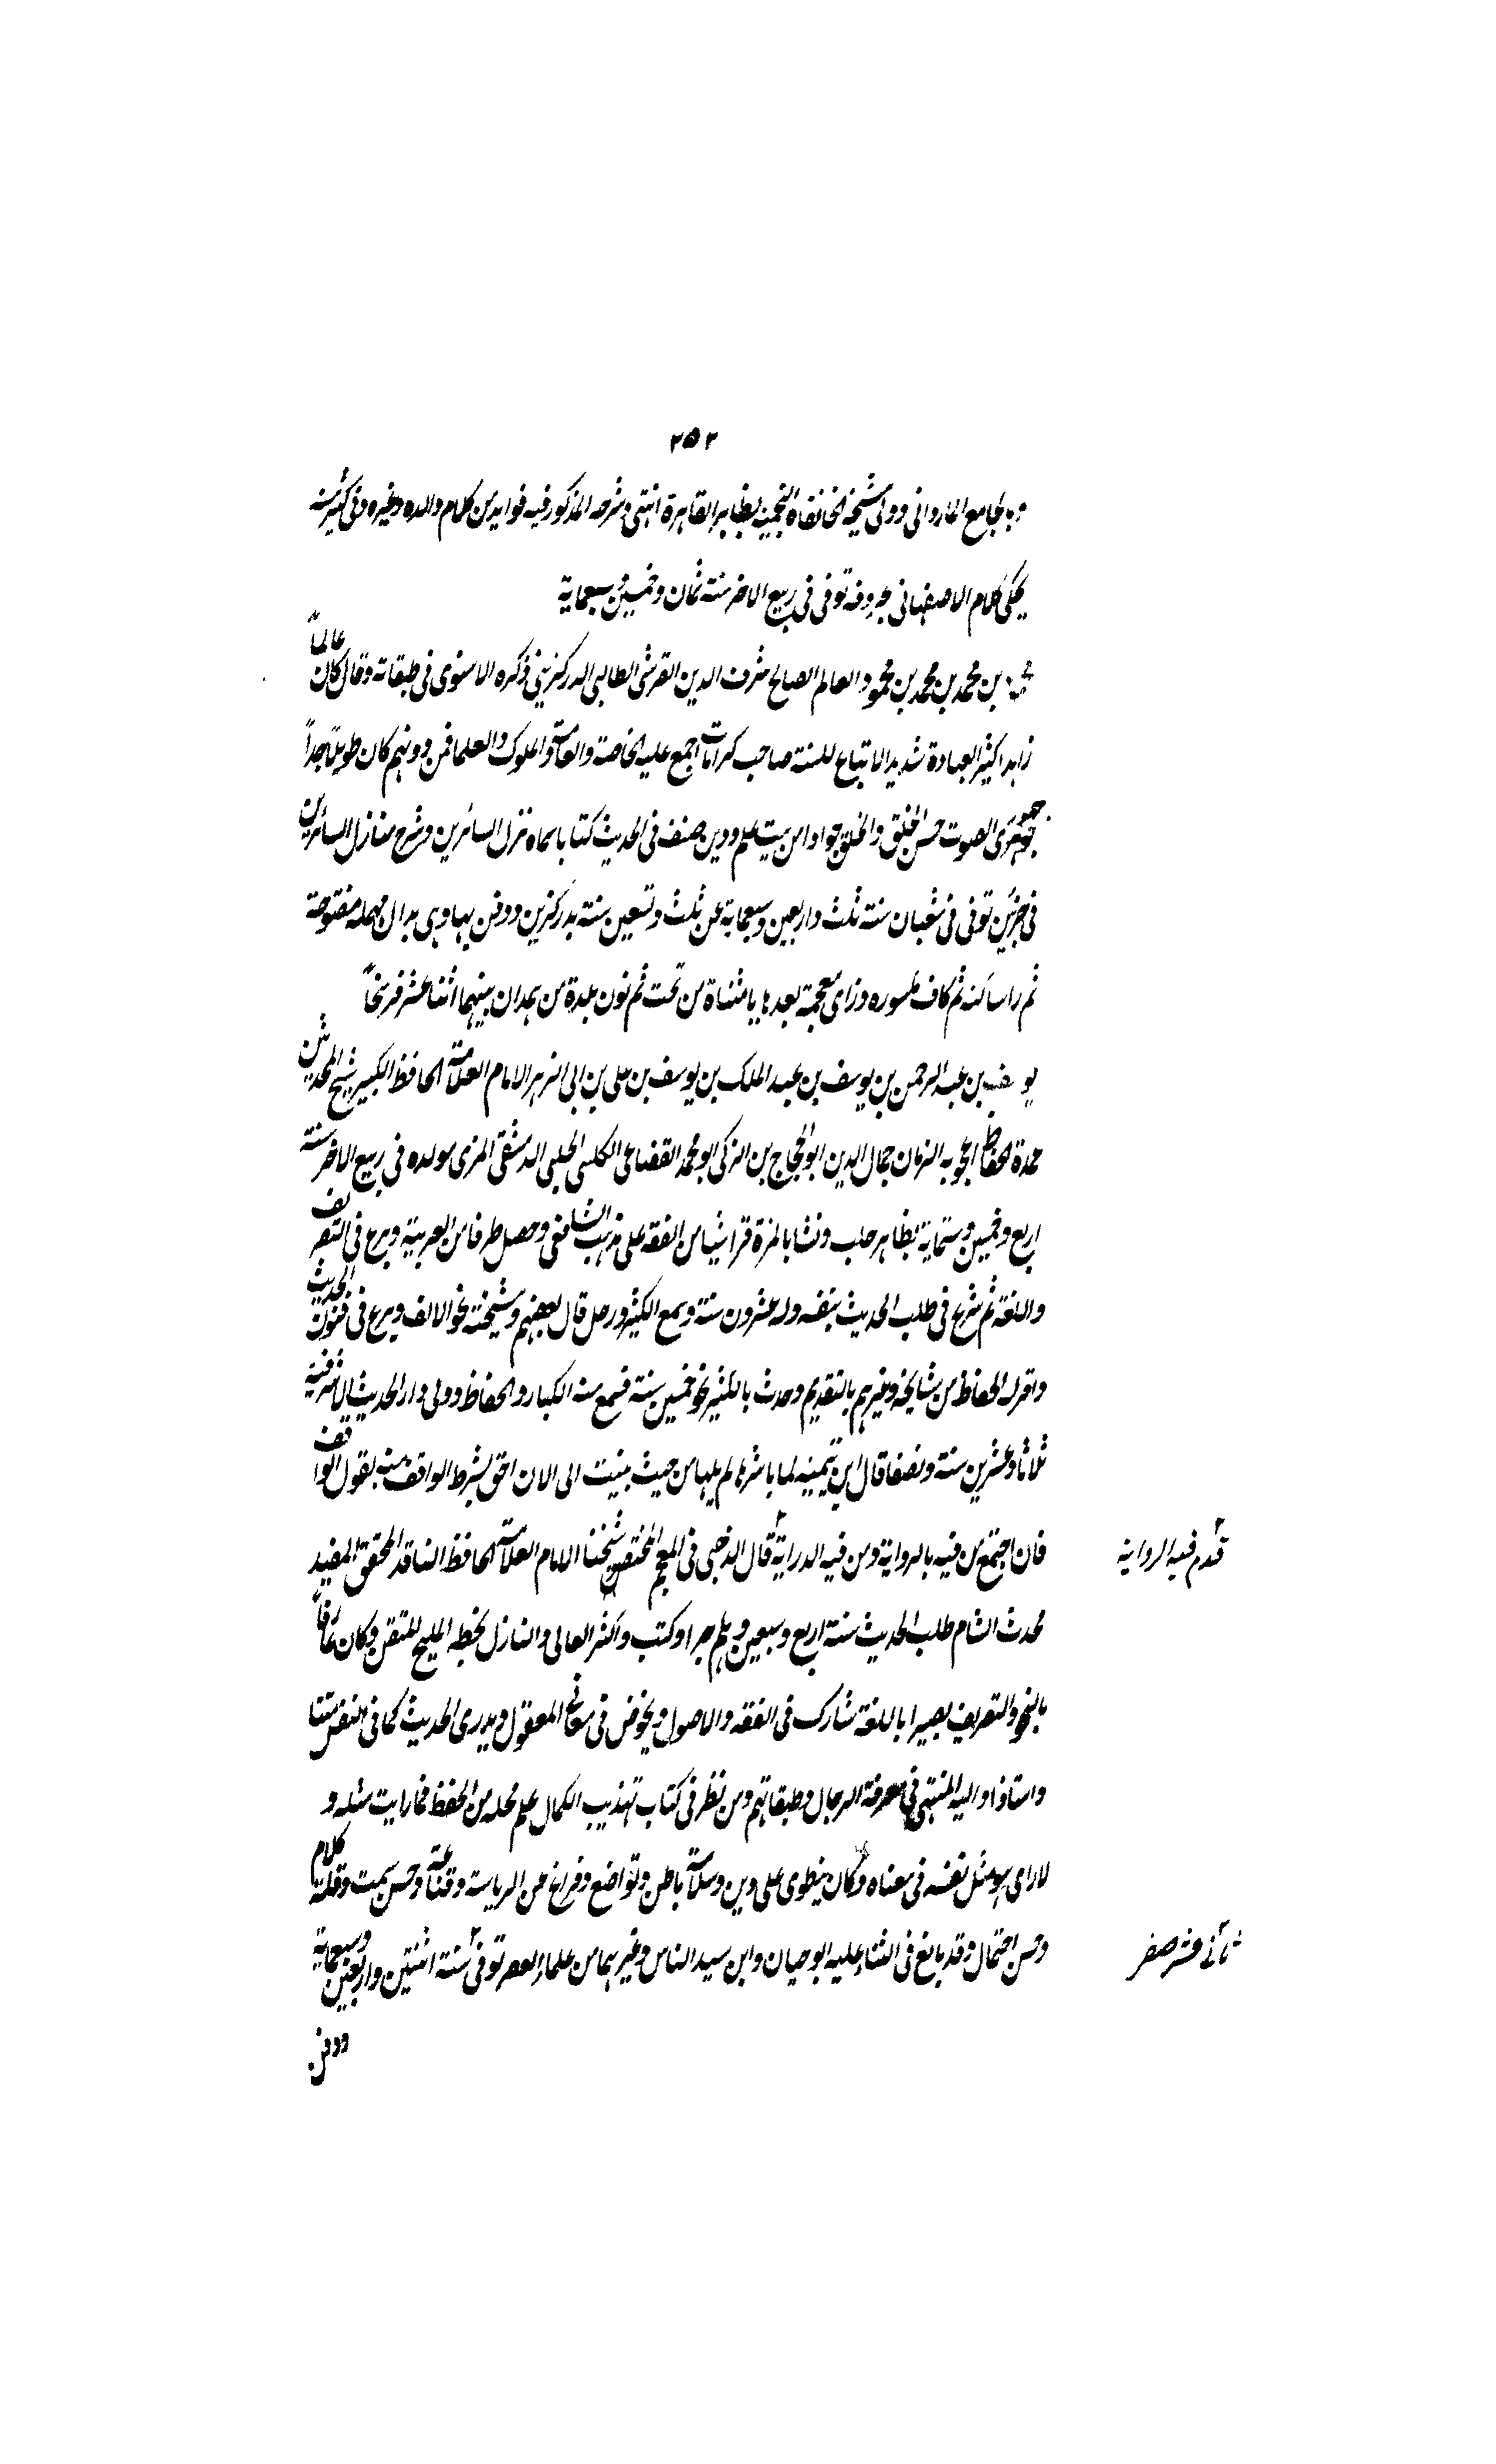 ٢٥٢
بالجامع المارداني وولى مشيخة الخانقاه النجمية بظاهر القاهرة انتهى وشرحه المذكور فيه فوايد من كلام والده وغيره وفى كثير منه
يحكى كلام الاصفهانى بحروفه توفى فى ربيع الاخر سنة ثمان وخمسين وسبعماية
بن محمد بن محمد بن محمود العالم الصالح شرف الدين القرشى الطالبى الدركزينى ذكره الاسنوى فى طبقاته وقال كان عالماً
زاهدا كثير العبادة شديد الاتباع للسنة صاحب كرامات اجمع عليه الخاصة والعامة والملوك والعلما فمن دونهم كان طويلا جداً
جهورى الصوت حسن الخلق والخلق جوادا من بيت علم ودين صنف فى الحديث كتابا سماه نزل السائرين وشرح منازل السائرين
فى جزئين توفى فى شعبان سنة ثلث واربعين وسبعماية عن ثلث وتسعين سنة بدركزين ودفن بها وهى بدال مهملة مفتوحة
ثم را ساكنه ثم كاف مكسوره وزاى معجمة بعدها يا مثناة من تحت ثم نون بلدة من همدان بينهما اثنا عشر فرسخاً
يوسف بن عبد الرحمن بن يوسف بن عبد الملك بن يوسف بن على بن ابى الزهر الامام العلامة الحافظ الكبير شيخ المحدثين
عمدة الحفاظ اعجوبة الزمان جمال الدين ابو الحجاج بن الزكى ابو محمد القضاعى الكلبى الحلبى الدمشقى المزى مولده فى ربيع الاخر سنة
اربع وخمسين وستماية بظاهر حلب ونشا بالمزة قرا شيا من الفقه على مذهب الشافعى وحصل طرفا من العربية وبرع فى التصريف
واللغة ثم شرع فى طلب الحديث بنفسه وله عشرون سنة وسمع الكثير ورحل قال بعضهم ومشيخته نحو الالف وبرع فى فنون الحديث
واقر له الحفاظ من مشايخه وغيرهم بالتقديم وحدث بالكثير نحو خمسين سنة فسمع منه الكبار والحفاظ وولى دار الحديث بالاشرفية
ثلاثا وعشرين سنة ونصفا قال ابن تيمية لما باشرها لم يلها من حيث بنيت الى الان احق بشرط الواقف منه بقول الواقف
فان اجتمع من فيه بالرواية ومن فيه الدراية قال الذهبى فى المعجم المختص شيخنا الامام العلامة الحافظ الناقد المحقق المفيد
قدم فيه الرواية
محدث الشام طلب الحديث سنة اربع وسبعين وهلم جرا وكتب واكثر العالى والنازل بخطه المليح المتقن وكان عارفاً
بالنحو والتصريف بصيرا باللغة مشارك فى الفقه والاصول ويخوض فى المعقول ويدرى الحديث كما فى النفس متنا
واستاذا واليه المنتهى فى معرفة الرجال وطبقاتهم ومن نظر فى كتاب تهذيب الكمال علم محله من الحفظ فما رايت مثله و
لا راى هو مثل نفسه فى معناه وكان ينطوى على دين وسلامة باطن وتواضع وفراغ عن الرياسة وقناعة وحسن سمت وقلة كلام
وحسن احتمال وقد بالغ فى الثناء عليه ابو حيان وابن سيد الناس وغيرهما من علماء العصر توفى سنة اثنتين واربعين وسبعماية
ثانى عشر صفر
ودفن